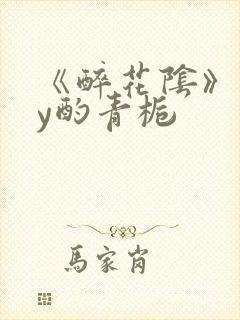 《醉花陰》
y酌青栀
馬家肖